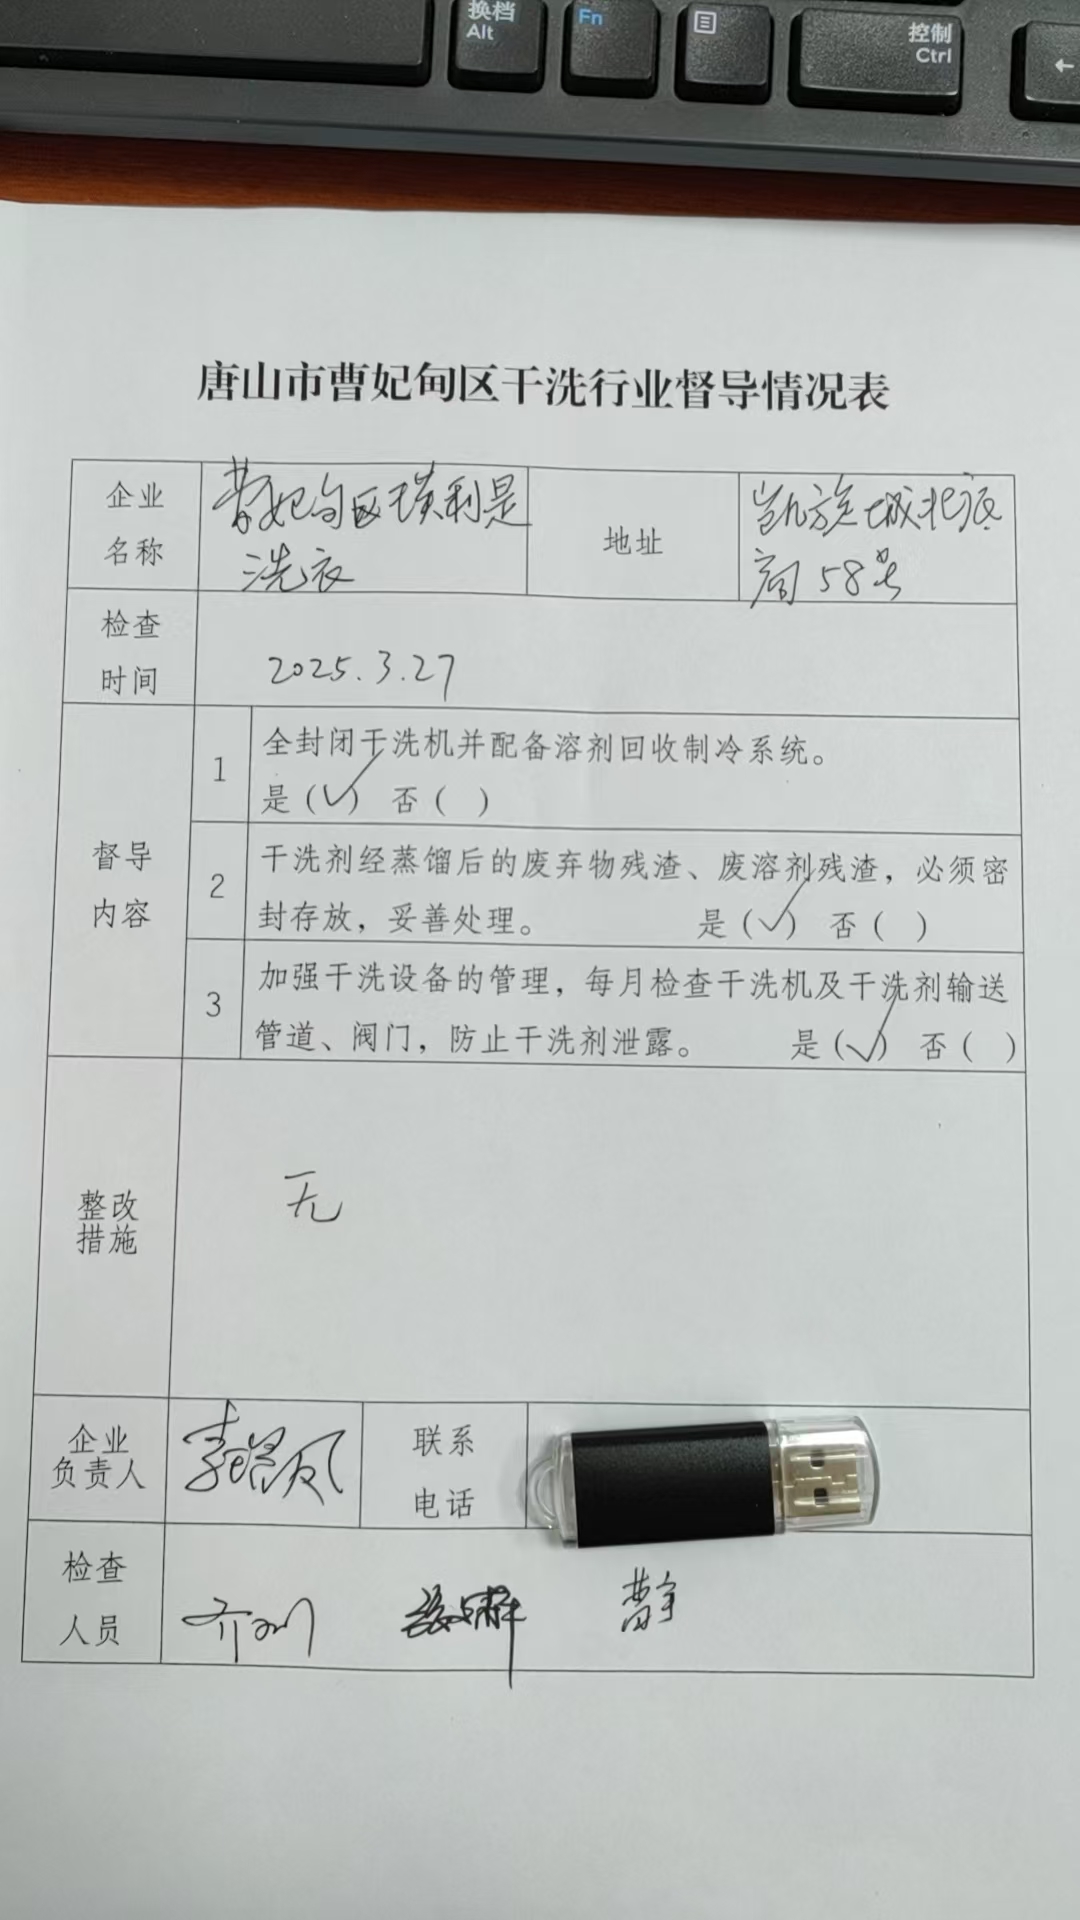 换档
Alt
Fn
控制
Ctrl
←
唐山市曹妃甸区干洗行业督导情况表
企业
名称
曹妃甸区瑛利是
洗衣
地址
凯旋城北底
商58号
检查
时间
2025.3.27
督导
内容
1
全封闭干洗机并配备溶剂回收制冷系统。
是(✓) 否( )
2
干洗剂经蒸馏后的废弃物残渣、废溶剂残渣，必须密
封存放，妥善处理。 是(✓) 否( )
3
加强干洗设备的管理，每月检查干洗机及干洗剂输送
管道、阀门，防止干洗剂泄露。 是(✓) 否( )
整改
措施
无
企业
负责人
联系
电话
检查
人员